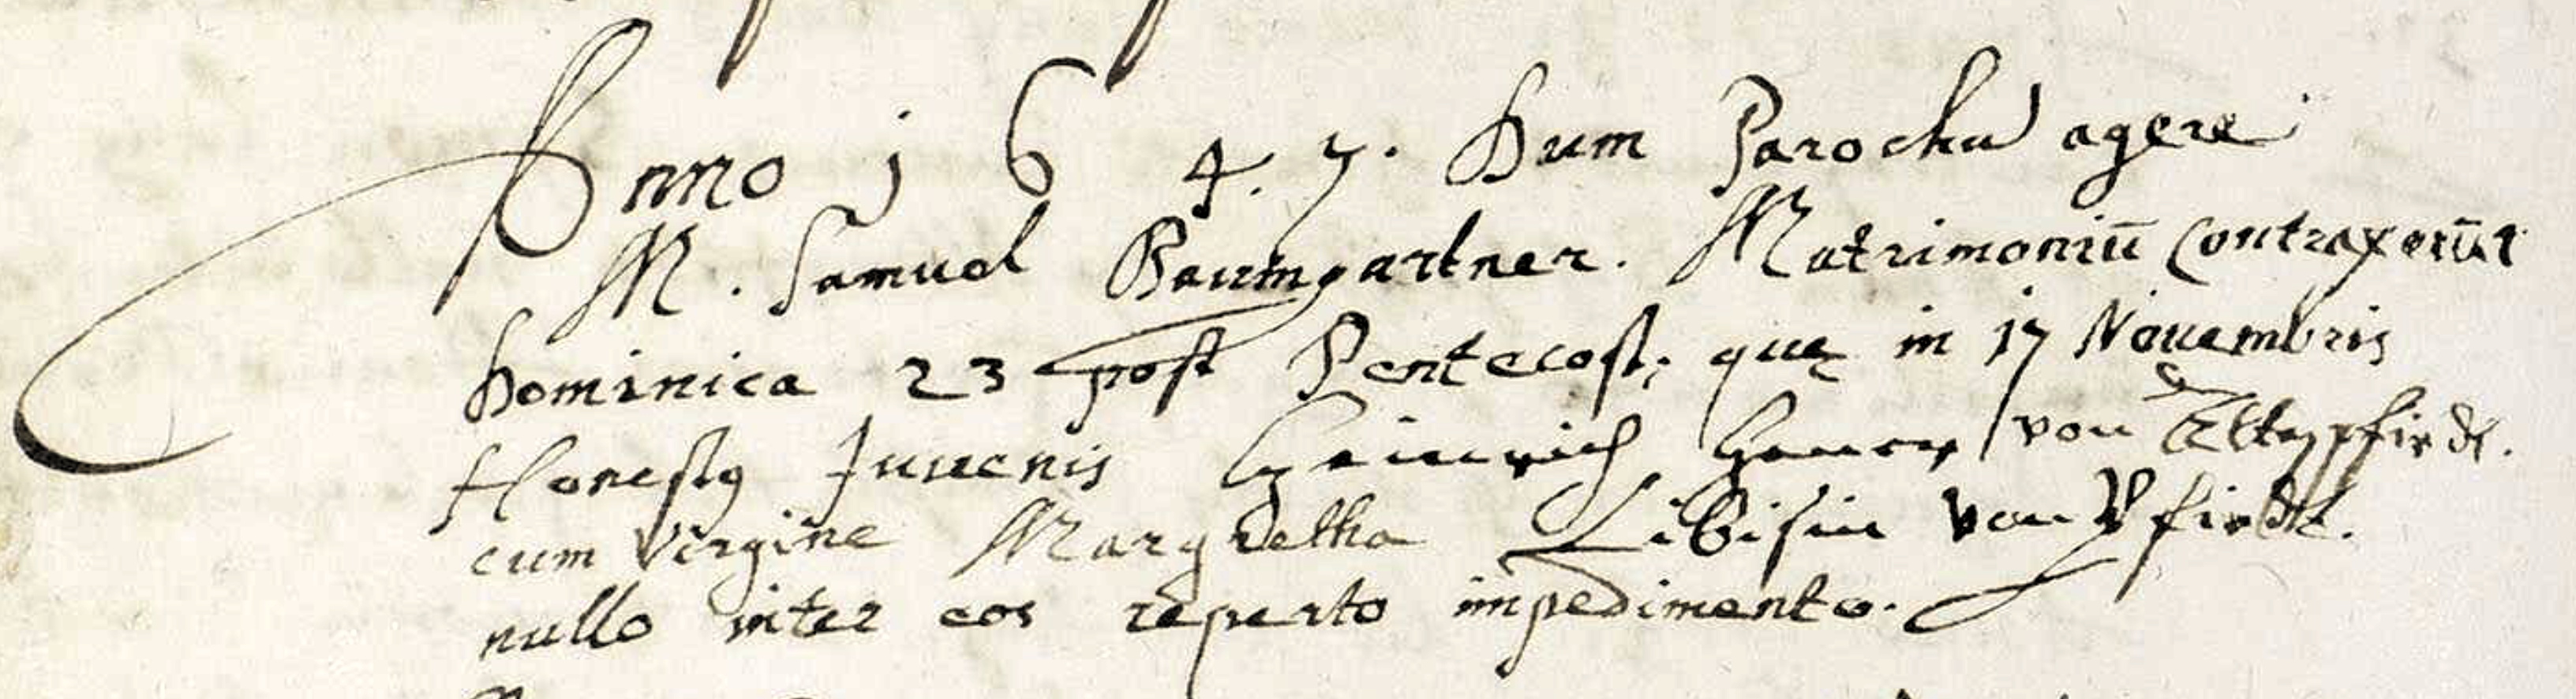 Anno 1647. Dum Parochu agere
M. Samuel Baumgartner. Matrimoniū Contraxerūt
Dominica 23 post Pentecost: quę in 17 Novembris
Honestq Juvenis Heinrich von Altenpfirdt.
cum Virgine Margretha Libisin von Pfirdt.
nullo inter eos reperto impedimento.